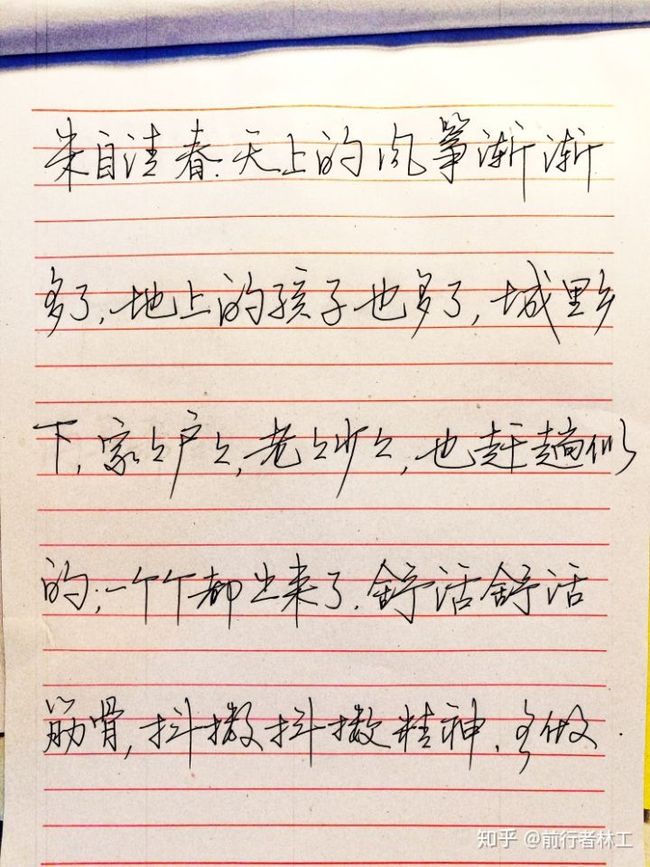 朱自清春.天上的风筝渐渐
多了,地上的孩子也多了,城里乡
下,家々户々,老々少々,也赶趟似
的;一个个都出来了.舒活舒活
筋骨,抖擞抖擞精神.各做
知乎 @前行者林工